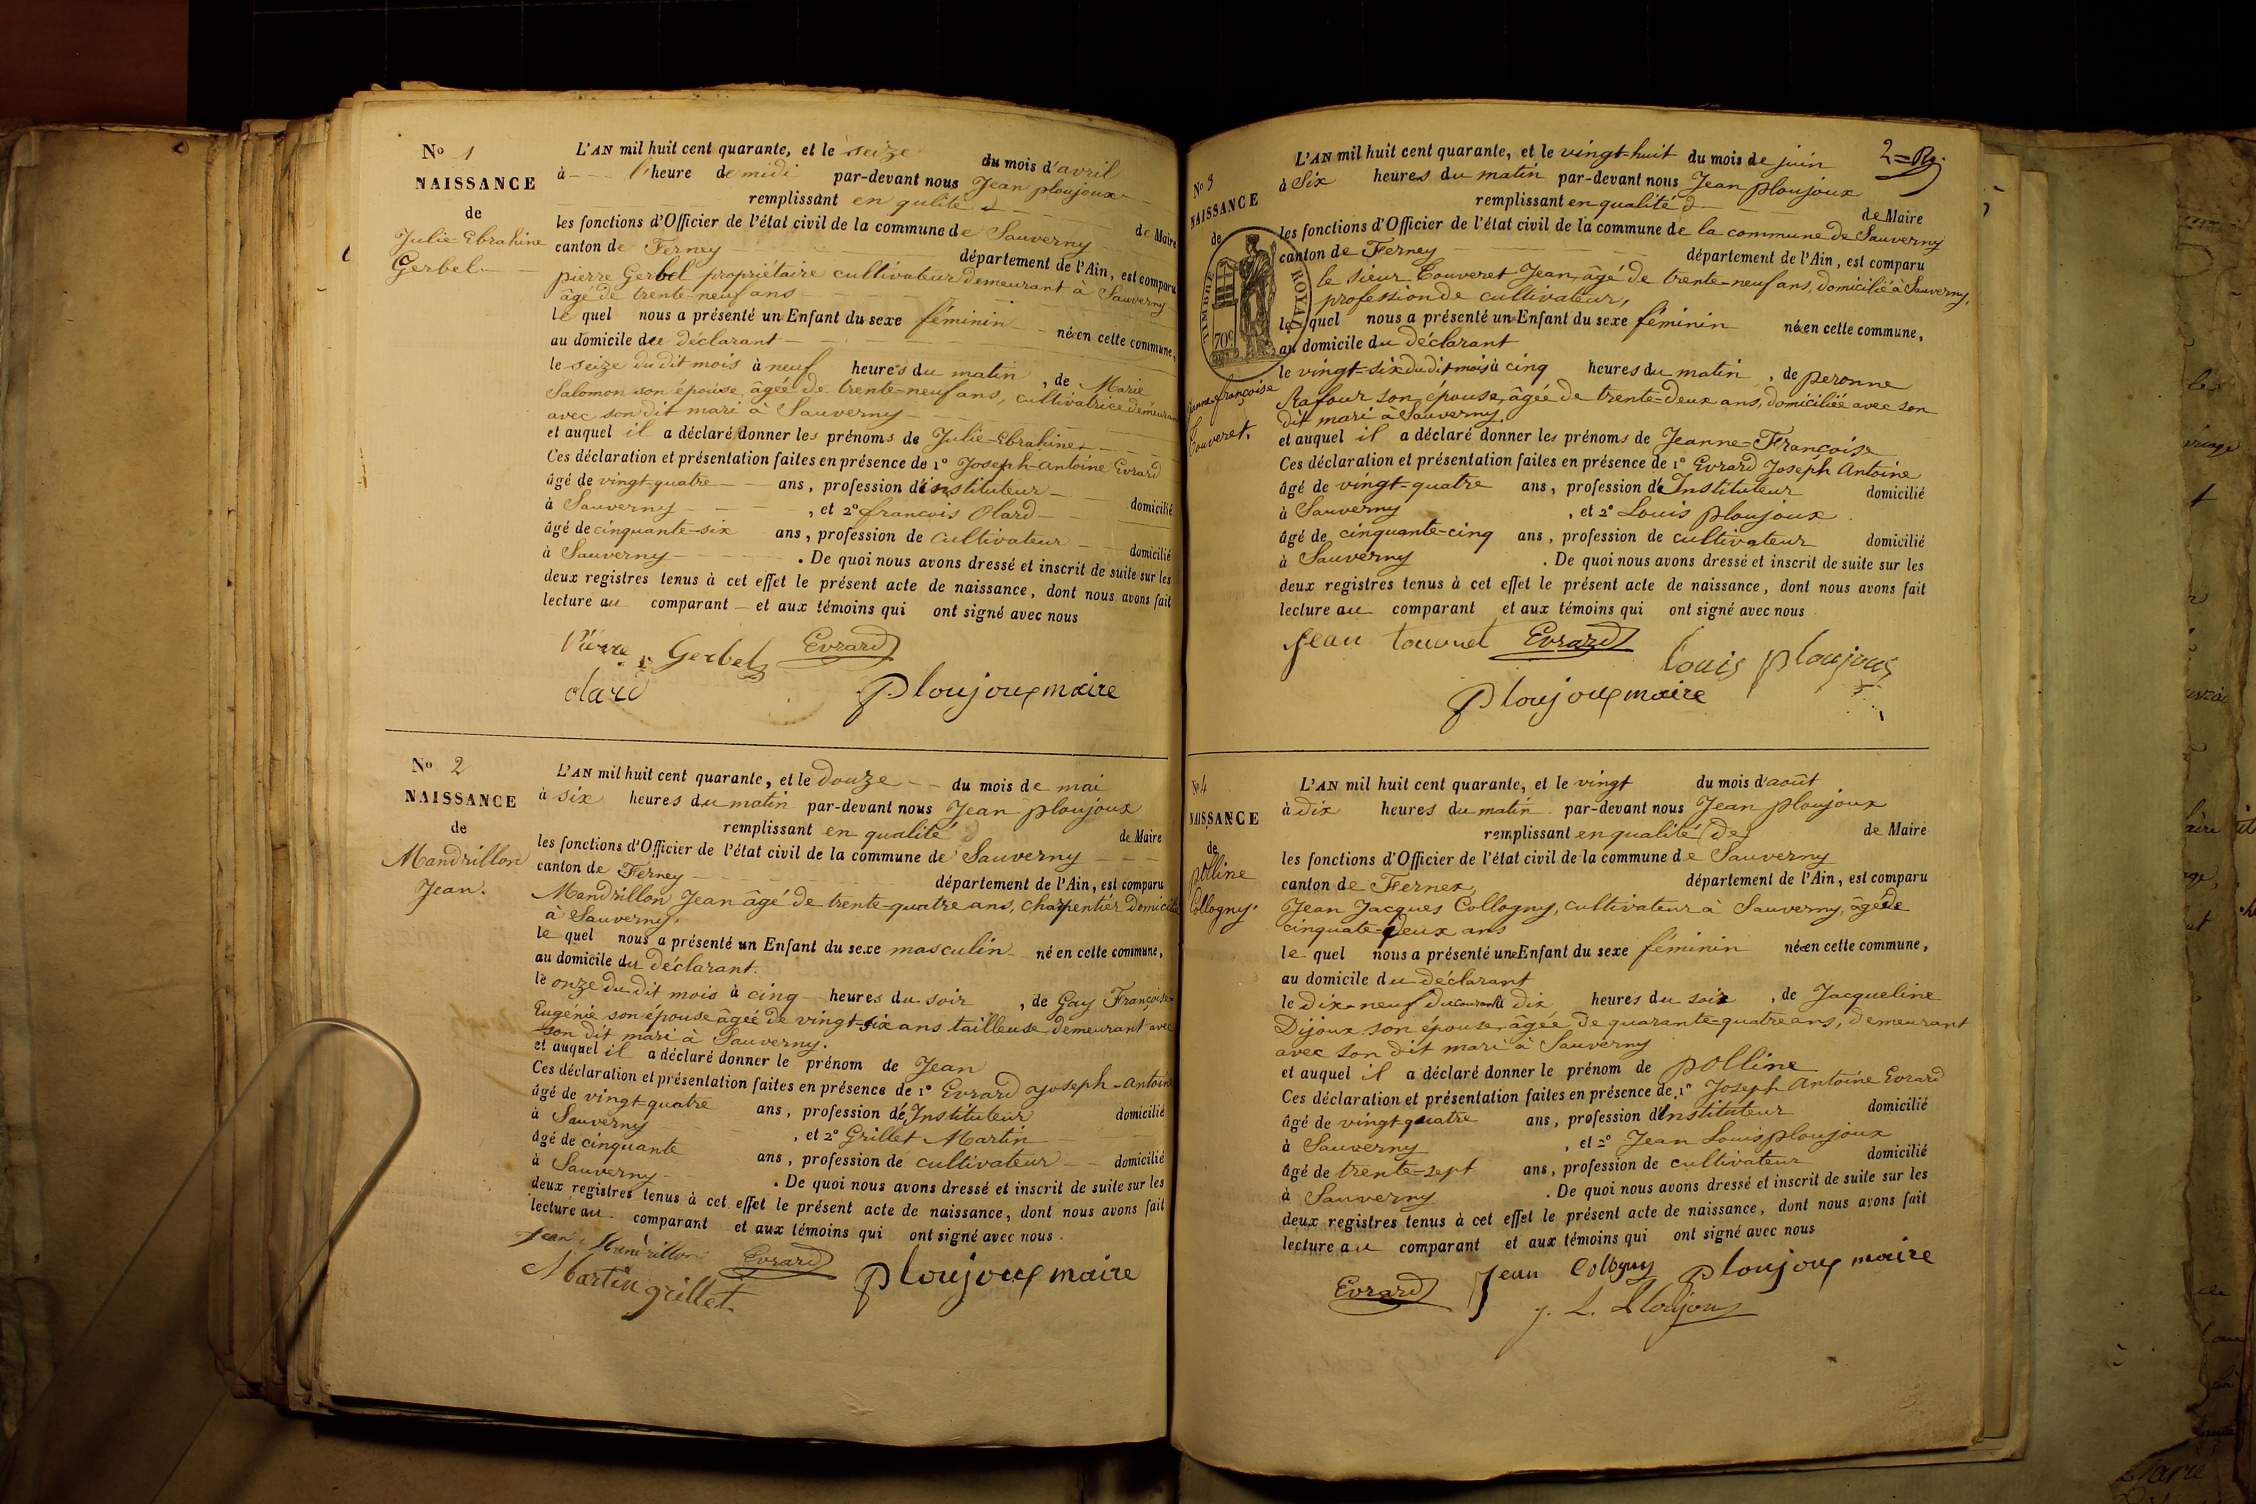 No 1
NAISSANCE
de
Julie-Ebrahine
Gerbel
L'AN mil huit cent quarante, et le seize du mois d'avril
à l'heure de midi par-devant nous Jean ploujoux
remplissant en qulité de Maire
les fonctions d'Officier de l'état civil de la commune de Sauverny
canton de Ferney département de l'Ain, est comparu
pierre Gerbel propriétaire cultivateur demeurant à Sauverny
âgé de trente-neuf ans
le quel nous a présenté un Enfant du sexe féminin née en cette commune,
au domicile de déclarant
le seize du dit mois à neuf heures du matin, de Marie
Salomon son épouse, âgée de trente-neuf ans, cultivatrice demeurant
avec son dit mari à Sauverny
et auquel il a déclaré donner les prénoms de Julie-Ebrahine
Ces déclaration et présentation faites en présence de 1° Joseph-Antoine Evrard
âgé de vingt-quatre ans, profession d'instituteur domicilié
à Sauverny, et 2° francois Olard
âgé de cinquante-six ans, profession de cultivateur domicilié
à Sauverny. De quoi nous avons dressé et inscrit de suite sur les
deux registres tenus à cet effet le présent acte de naissance, dont nous avons fait
lecture au comparant et aux témoins qui ont signé avec nous
Pierre Gerbel Evrard
olard ploujoux maire
No 2
NAISSANCE
de
Mandrillon
Jean.
L'AN mil huit cent quarante, et le douze du mois de mai
à six heures du matin par-devant nous Jean ploujoux
remplissant en qualité de Maire
les fonctions d'Officier de l'état civil de la commune de Sauverny
canton de Ferney département de l'Ain, est comparu
Mandrillon Jean âgé de trente-quatre ans, charpentier domicilié
à Sauverny.
le quel nous a présenté un Enfant du sexe masculin né en cette commune,
au domicile du déclarant.
le onze du dit mois à cinq heures du soir, de Gay Françoise
Eugénie son épouse âgée de vingt-six ans tailleuse demeurant avec
son dit mari à Sauverny.
et auquel il a déclaré donner le prénom de Jean
Ces déclaration et présentation faites en présence de 1° Evrard Joseph-Antoine
âgé de vingt-quatre ans, profession d'Instituteur domicilié
à Sauverny, et 2° Grillet Martin
âgé de cinquante ans, profession de cultivateur domicilié
à Sauverny. De quoi nous avons dressé et inscrit de suite sur les
deux registres tenus à cet effet le présent acte de naissance, dont nous avons fait
lecture au comparant et aux témoins qui ont signé avec nous.
Jean Mandrillon Evrard ploujoux maire
Martin grillet
2=
No 3
NAISSANCE
de
TIMBRE ROYAL
70c
Jeanne-françoise
Touveret.
L'AN mil huit cent quarante, et le vingt-huit du mois de juin
à Six heures du matin par-devant nous Jean ploujoux
remplissant en qualité de Maire
les fonctions d'Officier de l'état civil de la commune de la commune de Sauverny
canton de Ferney département de l'Ain, est comparu
le sieur Touveret Jean, âgé de trente-neuf ans, domicilié à Sauverny,
profession de cultivateur,
le quel nous a présenté un Enfant du sexe féminin née en cette commune,
au domicile du déclarant
le vingt-six du dit mois à cinq heures du matin, de peronne
Rafour son épouse, âgée de trente-deux ans, domiciliée avec son
dit mari à Sauverny.
et auquel il a déclaré donner les prénoms de Jeanne-Françoise
Ces déclaration et présentation faites en présence de 1° Evrard Joseph Antoine
âgé de vingt-quatre ans, profession d'Instituteur domicilié
à Sauverny, et 2° Louis ploujoux
âgé de cinquante-cinq ans, profession de cultivateur domicilié
à Sauverny. De quoi nous avons dressé et inscrit de suite sur les
deux registres tenus à cet effet le présent acte de naissance, dont nous avons fait
lecture au comparant et aux témoins qui ont signé avec nous
Jean Evrard Louis ploujoux
ploujoux maire
No 4
NAISSANCE
de
polline
Collogny.
L'AN mil huit cent quarante, et le vingt du mois d'août
à dix heures du matin par-devant nous Jean ploujoux
remplissant en qualité de de Maire
les fonctions d'Officier de l'état civil de la commune de Sauverny
canton de Fernex département de l'Ain, est comparu
Jean Jacques Collogny, cultivateur à Sauverny, âgé de
cinquate-deux ans
le quel nous a présenté une Enfant du sexe féminin née en cette commune,
au domicile du déclarant
le dix-neuf du courant à dix heures du soir, de Jacqueline
Dijoux son épouse, âgée de quarante-quatre ans, demeurant
avec son dit mari à Sauverny
et auquel il a déclaré donner le prénom de polline
Ces déclaration et présentation faites en présence de 1° Joseph Antoine Evrard
âgé de vingt-quatre ans, profession d'Instituteur domicilié
à Sauverny, et 2° Jean Louis ploujoux
âgé de trente-sept ans, profession de cultivateur domicilié
à Sauverny. De quoi nous avons dressé et inscrit de suite sur les
deux registres tenus à cet effet le présent acte de naissance, dont nous avons fait
lecture au comparant et aux témoins qui ont signé avec nous
Evrard Jean Collogny ploujoux maire
J. L. Ploujoux